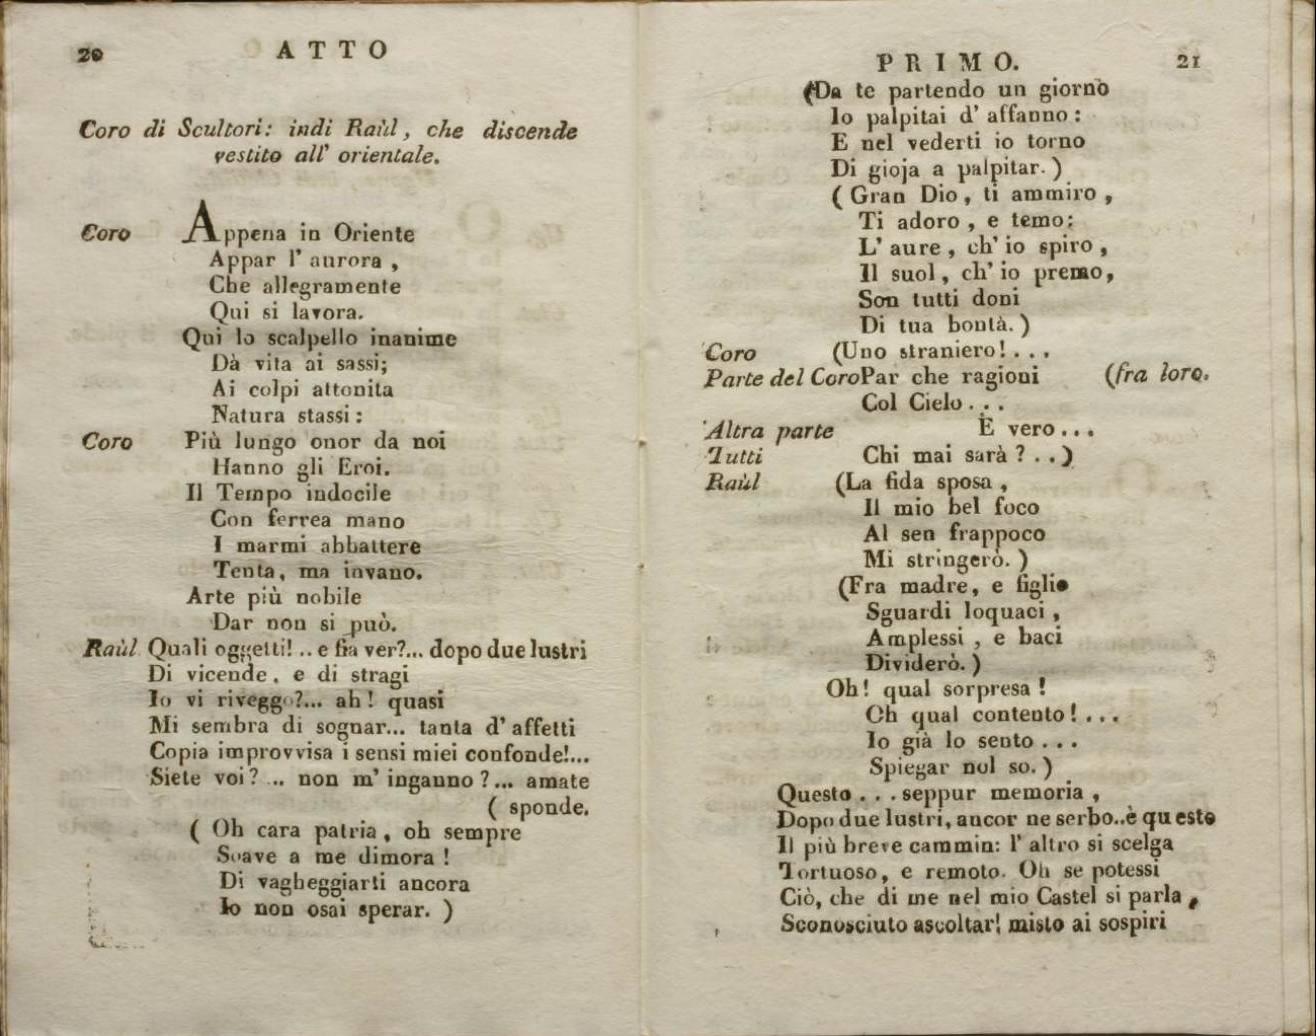 20
ATTO
Coro di Scultori: indi Raùl, che discende
vestito all' orientale.
Coro Appena in Oriente
Appar l' aurora,
Che allegramente
Qui si lavora.
Qui lo scalpello inanime
Dà vita ai sassi;
Ai colpi attonita
Natura stassi:
Coro Più lungo onor da noi
Hanno gli Eroi.
Il Tempo indocile
Con ferrea mano
I marmi abbattere
Tenta, ma invano.
Arte più nobile
Dar non si può.
Raùl Quali oggetti!.. e fia ver?... dopo due lustri
Di vicende, e di stragi
Io vi riveggo?... ah! quasi
Mi sembra di sognar... tanta d' affetti
Copia improvvisa i sensi miei confonde!...
Siete voi? ... non m' inganno?... amate
( sponde.
( Oh cara patria, oh sempre
Soave a me dimora!
Di vagheggiarti ancora
Io non osai sperar. )
PRIMO.
21
(Da te partendo un giorno
Io palpitai d' affanno:
E nel vederti io torno
Di gioja a palpitar. )
( Gran Dio, ti ammiro,
Ti adoro, e temo:
L' aure, ch' io spiro,
Il suol, ch' io premo,
Son tutti doni
Di tua bontà. )
Coro (Uno straniero!...
Parte del Coro Par che ragioni (fra loro.
Col Cielo...
Altra parte È vero...
Tutti Chi mai sarà?..)
Raùl (La fida sposa,
Il mio bel foco
Al sen frappoco
Mi stringerò. )
(Fra madre, e figlio
Sguardi loquaci,
Amplessi, e baci
Dividerò. )
Oh! qual sorpresa!
Oh qual contento!...
Io già lo sento...
Spiegar nol so. )
Questo... seppur memoria,
Dopo due lustri, ancor ne serbo..è questo
Il più breve cammin: l' altro si scelga
Tortuoso, e remoto. Oh se potessi
Ciò, che di me nel mio Castel si parla,
Sconosciuto ascoltar! misto ai sospiri